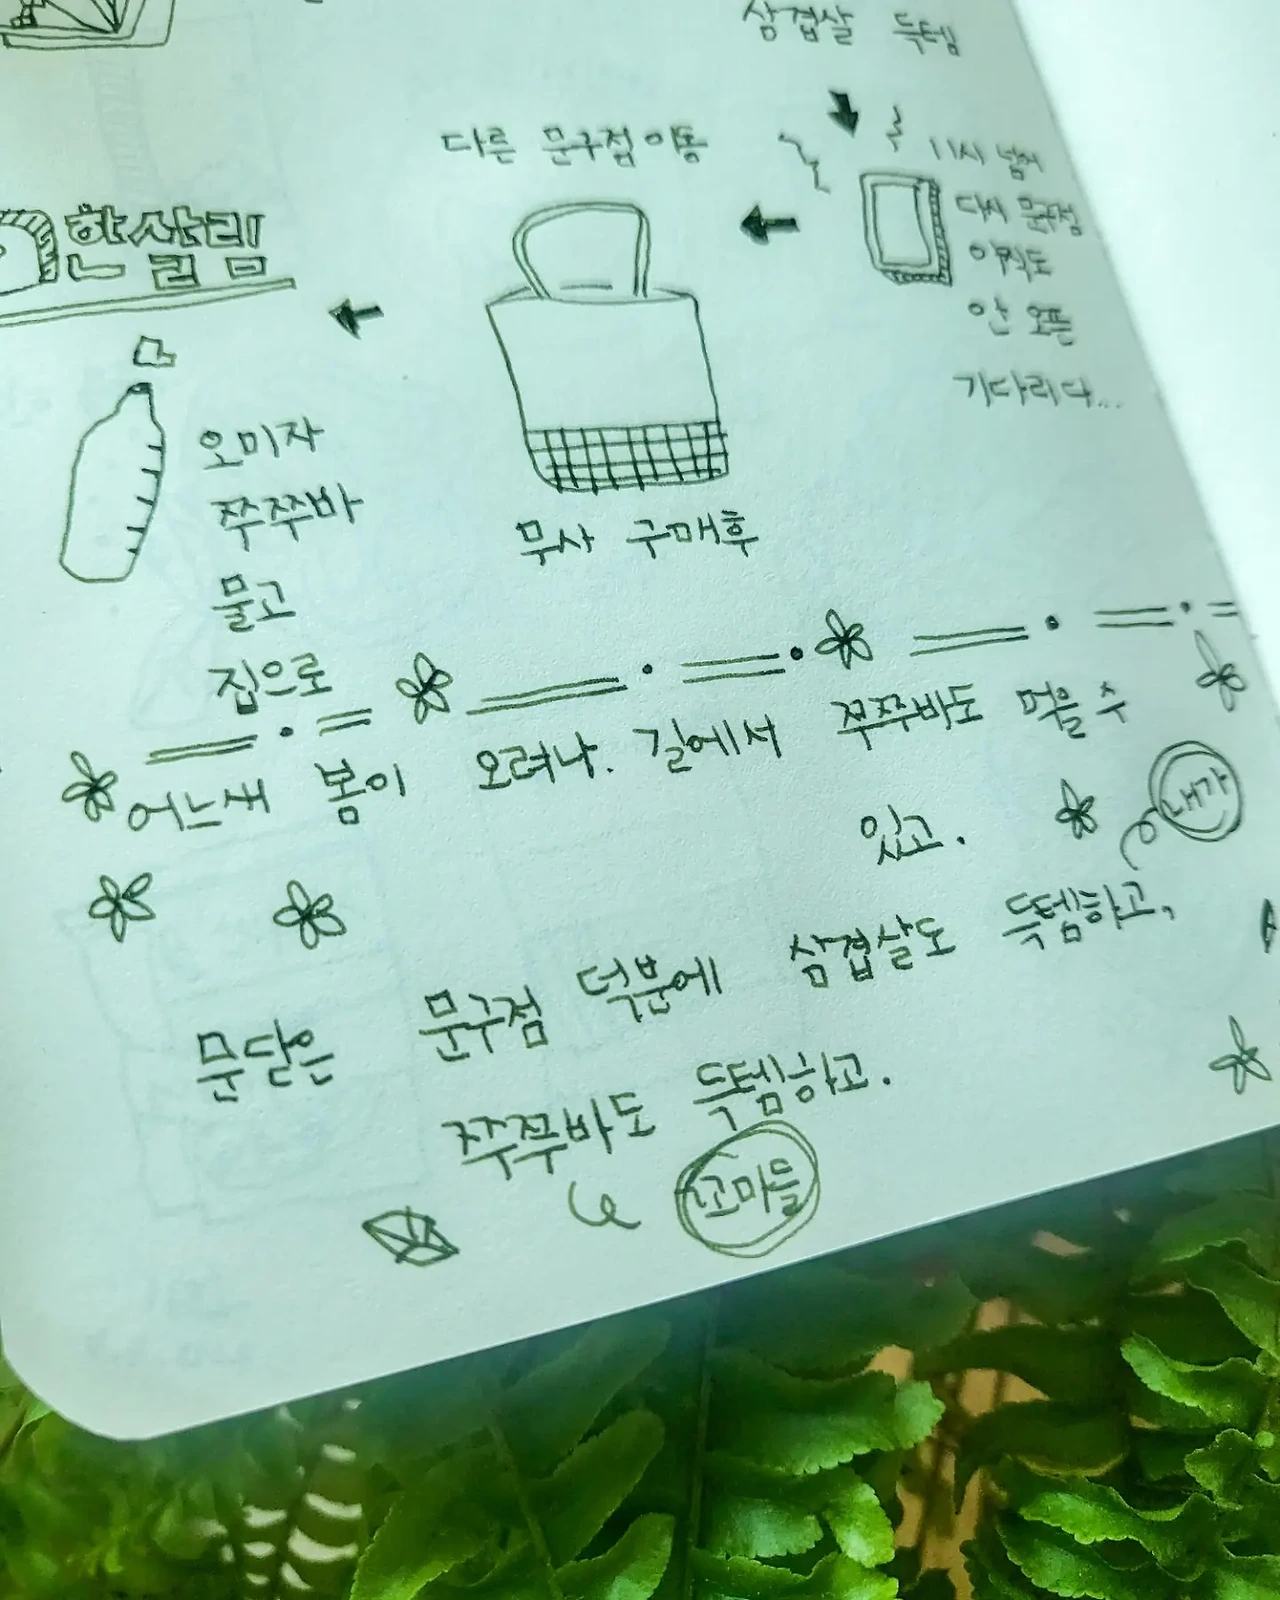 삼겹살 득템
11시 넘어
다시 문구점
아직도
안 오픈
기다리다...
다른 문구점 이동
무사 구매후
한살림
오미자
쭈쭈바
물고
집으로
어느새 봄이 오려나. 길에서 쭈쭈바도 먹을 수
있고.
내가
문닫은 문구점 덕분에 삼겹살도 득템하고,
쭈쭈바도 득템하고.
꼬마들